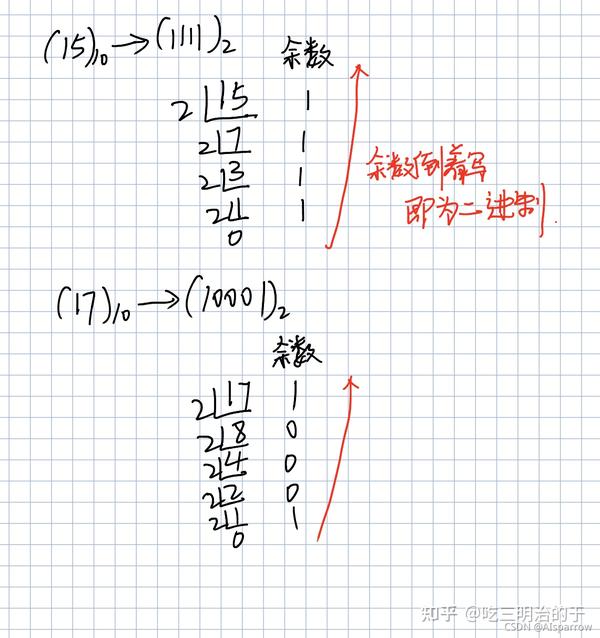 (15)₁₀→(1111)₂
余数
2 15 1
2 7 1
2 3 1
2 1 1
0
余数倒着写
即为二进制
(17)₁₀→(10001)₂
余数
2 17 1
2 8 0
2 4 0
2 2 0
2 1 1
0
知乎 @吃三明治的于
CSDN @AIsparrow